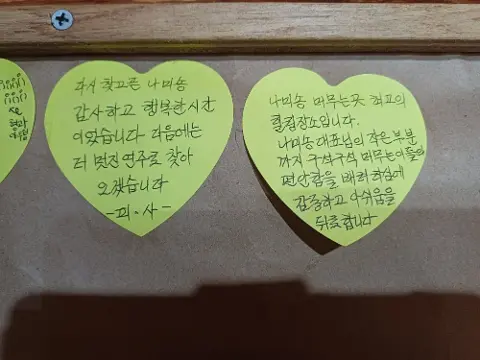 다시 찾고픈 나미송
감사하고 행복한시간
이었습니다 다음에는
더 멋진 연주로 찾아
오겠습니다
나미송 머무는곳 최고의
힐링장소입니다.
나미송 대표님의 작은부분
까지 구석구석 머무는이들의
편안함을 배려하심에
감동하고 아쉬움을
뒤로합니다